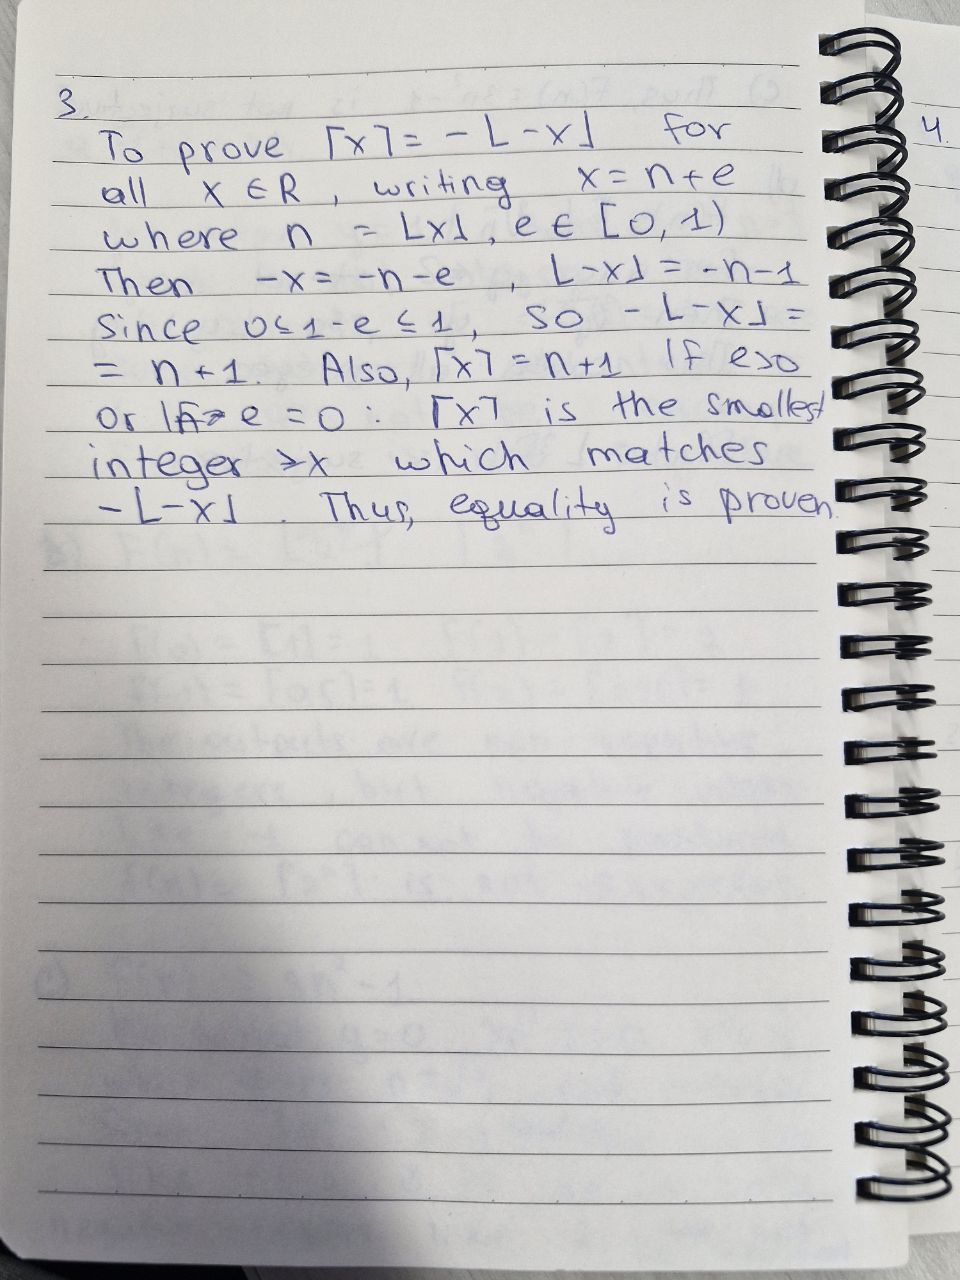 3.
To prove ⌈x⌉ = - ⌊-x⌋ for
all x ∈ R, writing x = n+e
where n = ⌊x⌋, e ∈ [0, 1)
Then -x = -n-e, ⌊-x⌋ = -n-1
Since 0≤1-e≤1, so - ⌊-x⌋ =
= n+1. Also, ⌈x⌉ = n+1 If e>0
or e = 0 : ⌈x⌉ is the smallest
integer ≥x which matches
-⌊-x⌋. Thus, equality is proven.
4.